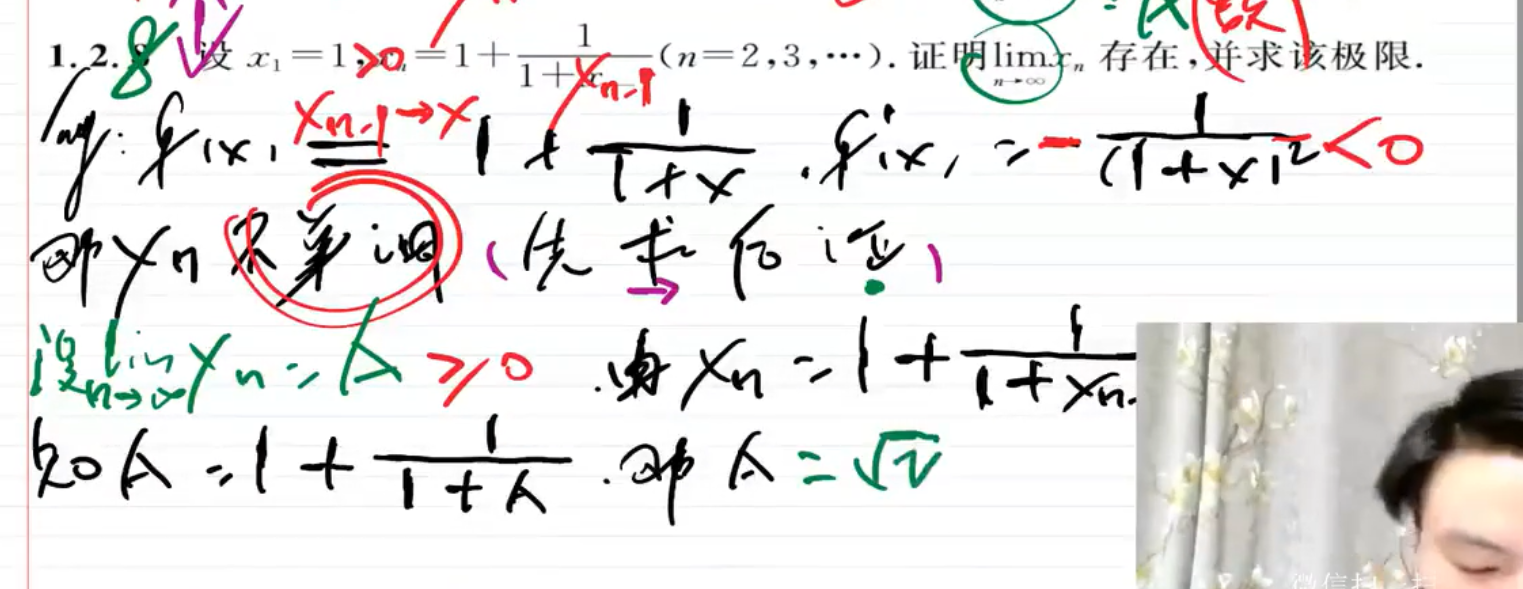 1.2.8 设 x₁=1, >0 =1+1/(1+x_{n-1}) (n=2,3,…). 证明 lim_{n→∞} xₙ 存在,并求该极限.
f(x) x_{n-1}→x = 1+1/(1+x). f'(x) = -1/(1+x)² <0
即 xₙ 不单调 (先求后证)
设 lim_{n→∞} xₙ = A ≥0. 由 xₙ = 1+1/(1+xₙ
知 A = 1+1/(1+A). 即 A = √2
微信扫一扫